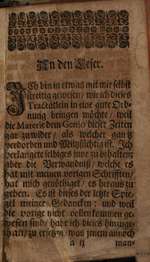 An den Leser.
Ich bin in etwas mit mir selbst
streittig gewesen / wie ich dieses
Tractätlein in eine gute Ord-
nung bringen möchte / weil
die Materie dem Genio dieser Zeiten
gar zuwider / als welcher gantz
verdorben und Mißzüchtig ist. Ich
verlangete selbiges inne zu behalten /
aber die Verwandniß / welche es
hat mit meinen vorigen Schrifften /
hat mich genöthiget / es heraus zu
geben. Es ist dieses der letzte Spie-
gel meiner Gedancken: und weil
die vorige nicht vollenkommen ge-
wesen sind / habe ich dieses hinzuge-
than / zu ersetzen / was jenen annoch
a ij man-